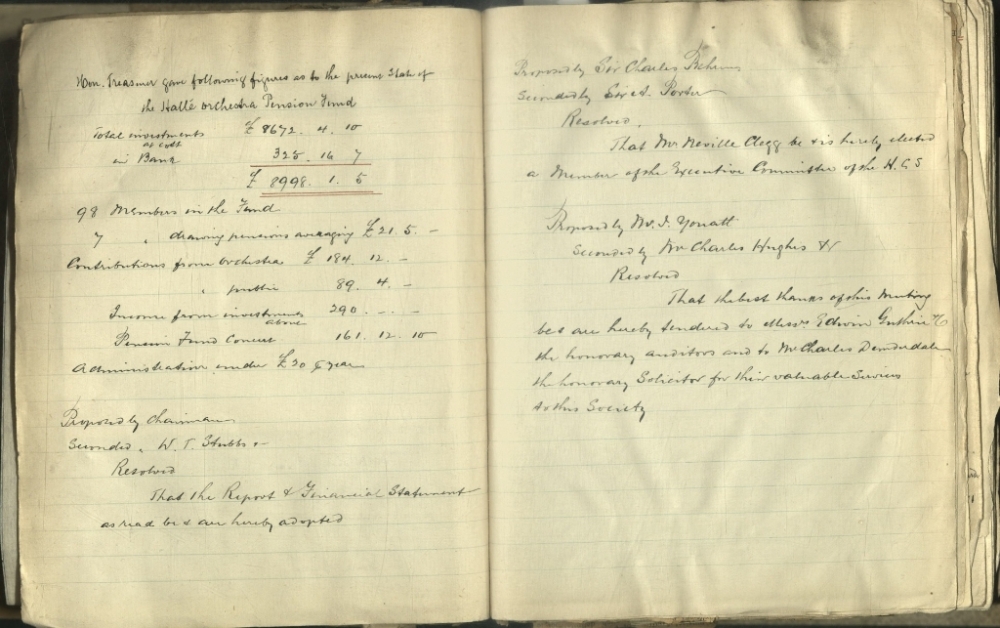 Hon. Treasurer gave following figures as to the present State of
the Hallé Orchestra Pension Fund
Total investments £ 8672. 4. 10
at cost
in Bank 325. 16 7
£ 8998. 1. 5
98 Members in the Fund
7 " drawing pensions averaging £21. 5. -
Contributions from Orchestra £ 184. 12. -
" public 89. 4. -
Income from investments 290. - . -
above
Pension Fund Concert 161. 12. 10
Administration under £20 a year
Proposed by Chairman
Seconded " W. T. Stubbs
Resolved
That the Report & Financial Statement
as read be & are hereby adopted
Proposed by Sir Charles Behrens
Seconded by Porter
Resolved.
That Mr Neville Clegg be & is hereby elected
a Member of the Executive Committee of the H.C.S
Proposed by Mr. J. Youatt
Seconded by Mr Charles Hughes &
Resolved
That the best thanks of this Meeting
be & are hereby tendered to Messrs Edwin Guthrie & Co
the honorary auditors and to Mr Charles
the honorary Solicitor for their valuable services
to this Society